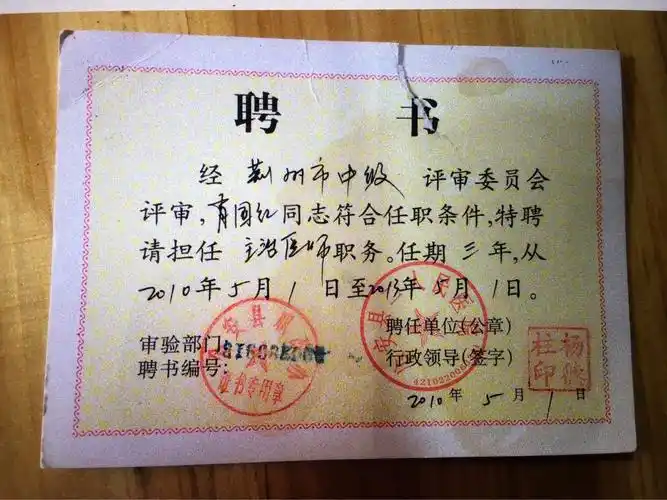 聘书
经荆州市中级评审委员会
评审,育国红同志符合任职条件,特聘
请担任主治医师职务。任期三年,从
2010年5月1日至2013年5月1日。
审验部门:
聘书编号:
证书专用章
聘任单位(公章)
行政领导(签字)
杨修柱印
2010年5月1日